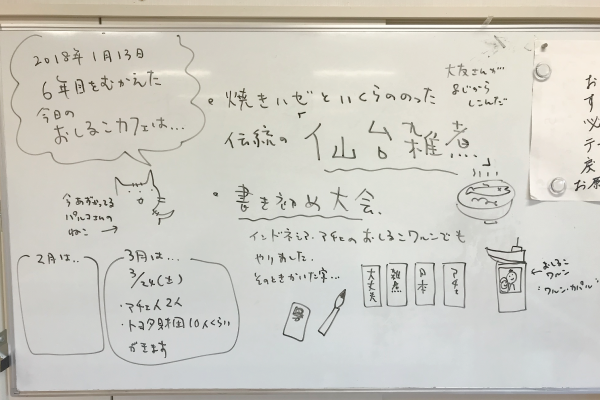 2018年1月13日
6年目をむかえた
今日の
おしるこカフェは...
・焼きハゼといくらののった
伝統の仙台雑煮
大友さんが
まじから
しこんだ
・書きぞめ大会
インドネシア・アチェのおしるこワルンでも
やりました.
そのときかいた字...
大丈夫
雑煮
日本
アチェ
←おしるこ
ワルン
今あずかってる
パルコさんの
ねこ →
2月は..
3月は...
3/24(土)
・アチェ人2人
・トヨタ財団10人くらい
がきます
お
す
必
テー
戻
お茶